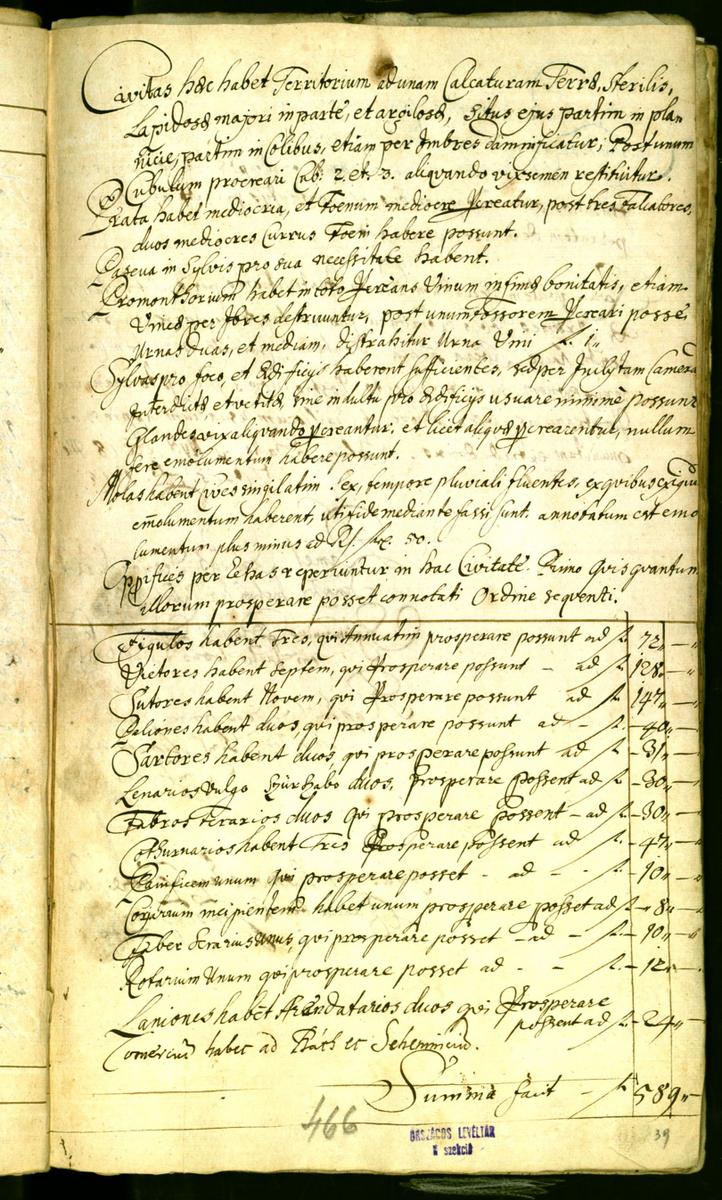 Civitas hæc habet Territorium ad unam Calcaturam Terræ, sterilis,
Lapidosæ majori in parte, et argilosæ, Situs ejus partim in pla-
nicie, partim in Colibus, etiam per Imbres damnificatur, Post unum
Cubulum procreari Cub: 2. et. 3. aliquando vix semen restituitur.
Prata habet mediocria, et Foenum mediocre Pcreatur, post tres Falcatores,
duos mediocres Currus Foeni habere possunt.
Pascua in Sylvis pro sua necessitate habent.
Promonthorium habet in toto Pcreans Vinum infimæ bonitatis, etiam
Vineæ per Ibres destruuntur, post unum Fossorem Pcreari posse,
Urnas duas, et mediam, distrahitur Urna Vini f. 1.,
Sylvas pro foco, et Ædificijs haberent sufficientes, sed per Inclytam Camera
Interdictæ et vetitæ, sine indultu pro ædificijs usuare minime possunt
Glandes vix aliquando pcreantur, et licet aliquæ pcrearentur, nullum
fere emolumentum habere possunt.
Molas habent cives singilatim sex, tempore pluviali fluentes, ex quibus exiguu
emolumentum haberent, uti fide mediante fassi sunt. annotatum est emo
lumentum plus minus ad Rf. 50.
Oppifices per Cehas reperiuntur in hac Civitate. Anno quis quantum
illorum prosperare posset connotati Ordine sequenti.
Figulos habent Tres, qui Annuatim prosperare possunt ad f. 72 „ — „
Vietores habent septem, qui Prosperare possunt — ad f. 128 „ — „
Sutores habent Novem, qui Prosperare possunt ad f. 147 „ — „
Peliones habent duos, qui prosperare possunt ad — f. — 40 „ — „
Sartores habent duos, qui prosperare possunt ad f. — 31 „ — „
Lanarios vulgo Szür Szabo duos, prosperare possent ad f. — 30 „ — „
Fabros ferarios duos qui prosperare Possent — ad f. — 30 „ — „
Cothurnarios habent Tres Prosperare possent ad f. — 47 „ — „
Panificem unum qui prosperare posset - ad - - f. — 10 „ — „
Coriarium incipientem habet unum prosperare posset ad f. — 8 „ — „
Faber Serarius Unus, qui prosperare posset — ad — f. — 10 „ — „
Rotarium Unum qui prosperare posset ad - - f. — 12 „ — „
Laniones habet Arendatarios duos qui Prosperare
possent ad f. — 24 „ —
Comercium habet ad Bath et Schemnicium.
Summa facit — f. 589 „
466
ORSZÁGOS LEVÉLTÁR
szekció
39